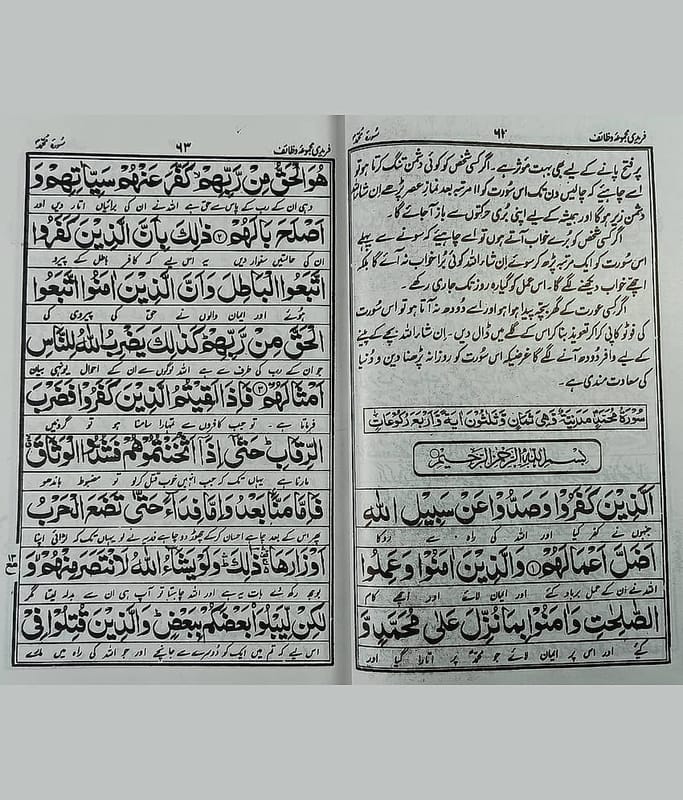 فریدی مجموعہ وظائف ۶۲ سُورۃ محمدؐ
پر فتح پانے کے لیے بھی بہت مؤثر ہے۔ اگر کسی شخص کو کوئی دشمن تنگ کرتا ہو تو
اسے چاہیئے کہ چالیس دن تک اس سُورت کو ۱۱ مرتبہ بعد نماز عصر پڑھے ان شاءاللہ
دشمن زیر ہوگا اور ہمیشہ کے لیے اپنی بُری حرکتوں سے باز آجائے گا۔
اگر کسی شخص کو بُرے خواب آتے ہوں تو اسے چاہیئے کہ سونے سے پہلے
اس سُورت کو ایک مرتبہ پڑھ کر سوئے ان شاء اللہ کوئی بُرا خواب نہ آئے گا بلکہ
اچھے خواب دیکھنے لگے گا۔ اس عمل کو گیارہ روز تک جاری رکھے۔
اگر کسی عورت کے گھر بچّہ پیدا ہوا ہو اور اسے دُودھ نہ آتا ہو تو اس سُورت
کی فوٹو کاپی کرا کر تعویذ بنا کر اس کے گلے میں ڈال دیں۔ ان شاء اللہ بچّے کے پینے
کے لیے وافر دُودھ آنے لگے گا غرضیکہ اس سُورت کو روزانہ پڑھنا دین و دُنیا
کی سعادت مندی ہے۔
سُوْرَةُ مُحَمَّدٍ مَّدَنِيَّةٌ وَّهِيَ ثَمَانٌ وَّثَلٰثُوْنَ اٰيَةً وَّاَرْبَعُ رَكُوْعَاتٍ
بِسْمِ اللهِ الرَّحْمٰنِ الرَّحِيْمِ
اَلَّذِيْنَ كَفَرُوْا وَصَدُّوْا عَنْ سَبِيْلِ اللهِ
جنہوں نے کفر کیا اور اللہ کی راہ سے روکا
اَضَلَّ اَعْمَالَهُمْ ۝۱ وَالَّذِيْنَ اٰمَنُوْا وَعَمِلُوا
اللہ نے ان کے عمل برباد کئے اور ایمان لائے اور اچھے کام
الصّٰلِحٰتِ وَاٰمَنُوْا بِمَا نُزِّلَ عَلٰى مُحَمَّدٍ وَّ
کیے اور اس پر ایمان لائے جو محمدؐ پر اتارا گیا اور
فریدی مجموعہ وظائف ۶۳ سُورۃ محمدؐ
هُوَ الْحَقُّ مِنْ رَّبِّهِمْ كَفَّرَ عَنْهُمْ سَيِّاٰتِهِمْ وَ
وہی ان کے رب کے پاس سے حق ہے اللہ نے ان کی برائیاں اتار دیں اور
اَصْلَحَ بَالَهُمْ ۝۲ ذٰلِكَ بِاَنَّ الَّذِيْنَ كَفَرُوا
ان کی حالتیں سنوار دیں یہ اس لیے کہ کافر باطل کے پیرو
اتَّبَعُوا الْبَاطِلَ وَاَنَّ الَّذِيْنَ اٰمَنُوا اتَّبَعُوا
ہوئے اور ایمان والوں نے حق کی پیروی کی
الْحَقَّ مِنْ رَّبِّهِمْ كَذٰلِكَ يَضْرِبُ اللهُ لِلنَّاسِ
جو ان کے رب کی طرف سے ہے اللہ لوگوں سے ان کے احوال یونہی بیان
اَمْثَالَهُمْ ۝۳ فَاِذَا لَقِيْتُمُ الَّذِيْنَ كَفَرُوْا فَضَرْبَ
فرماتا ہے۔ تو جب کافروں سے تمہارا سامنا ہو تو گردنیں
الرِّقَابِ حَتّٰى اِذَا اَثْخَنْتُمُوْهُمْ فَشُدُّوا الْوَثَاقَ
مارنا ہے یہاں تک کہ جب انہیں خوب قتل کرلو تو مضبوط باندھو
فَاِمَّا مَنًّا بَعْدُ وَاِمَّا فِدَآءً حَتّٰى تَضَعَ الْحَرْبُ
پھر اس کے بعد چاہے احسان کرکے چھوڑ دو چاہے فدیہ لے لو یہاں تک کہ لڑائی اپنا
اَوْزَارَهَا ذٰلِكَ وَلَوْ يَشَآءُ اللهُ لَانْتَصَرَ مِنْهُمْ وَ
بوجھ رکھ دے بات یہ ہے اور اللہ چاہتا تو آپ ہی ان سے بدلہ لیتا مگر
لٰكِنْ لِّيَبْلُوَا۟ بَعْضَكُمْ بِبَعْضٍ وَالَّذِيْنَ قُتِلُوْا فِيْ
اس لیے کہ تم میں ایک کو دوسرے سے جانچے اور جو اللہ کی راہ میں مارے